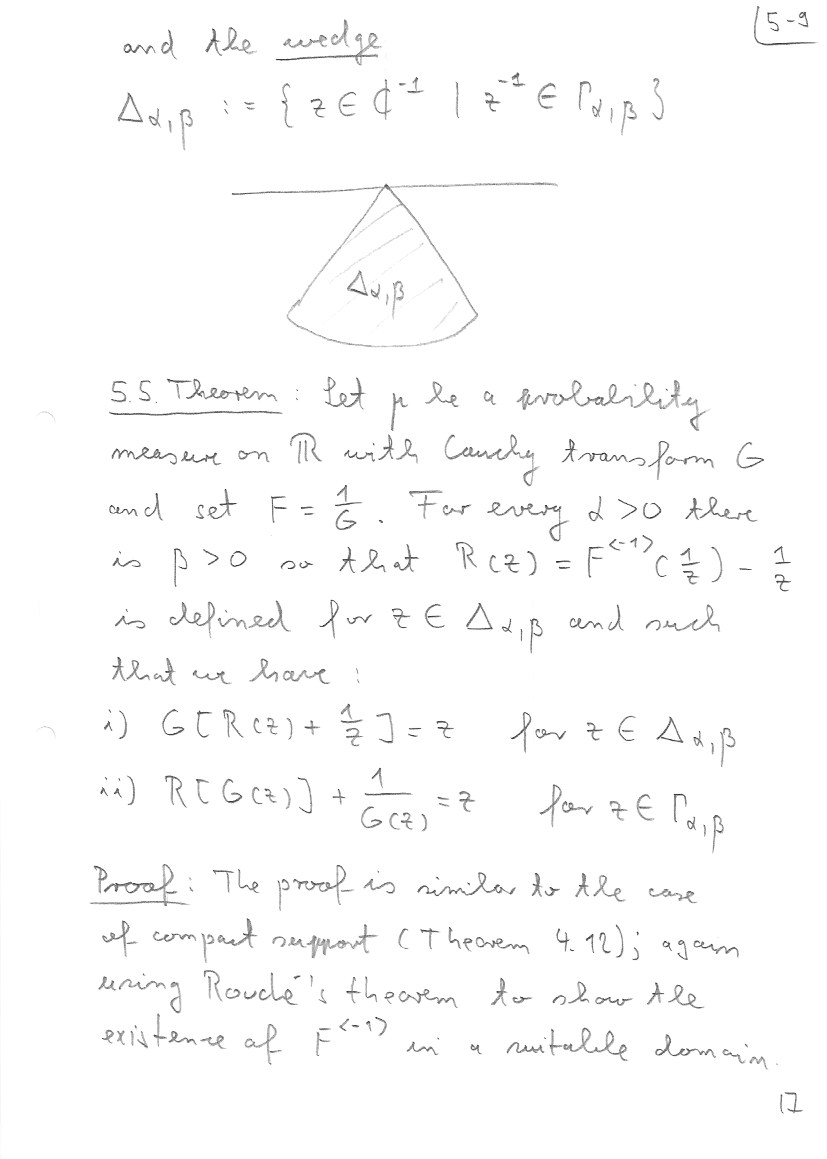 5-9
and the wedge
Δα,β := { z ∈ ℂ⁻¹ | z⁻¹ ∈ Γα,β }
Δα,β
5.5. Theorem: Let μ be a probability
measure on ℝ with Cauchy transform G
and set F = 1/G. For every α > 0 there
is β > 0 so that R(z) = F^<-1>(1/z) - 1/z
is defined for z ∈ Δα,β and such
that we have:
i) G[R(z) + 1/z] = z for z ∈ Δα,β
ii) R[G(z)] + 1/G(z) = z for z ∈ Γα,β
Proof: The proof is similar to the case
of compact support (Theorem 4.12); again
using Rouché's theorem to show the
existence of F^<-1> in a suitable domain.
17